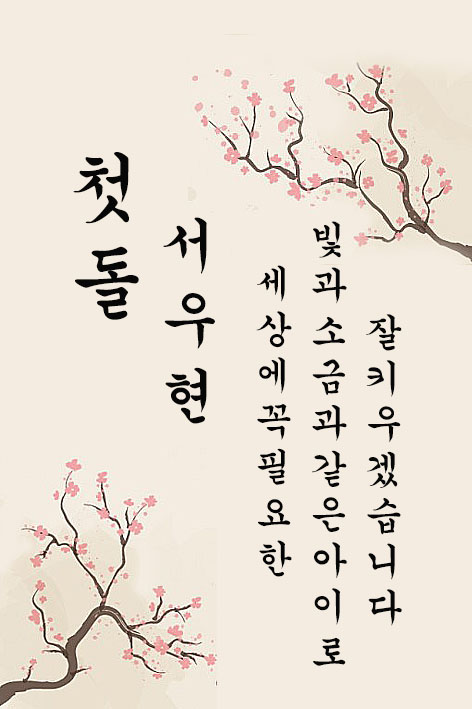 첫돌
서우현
세상에꼭필요한
빛과소금과같은아이로
잘키우겠습니다